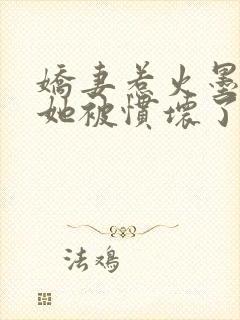 嬌妻惹火墨
她被慣壞了
法鴉